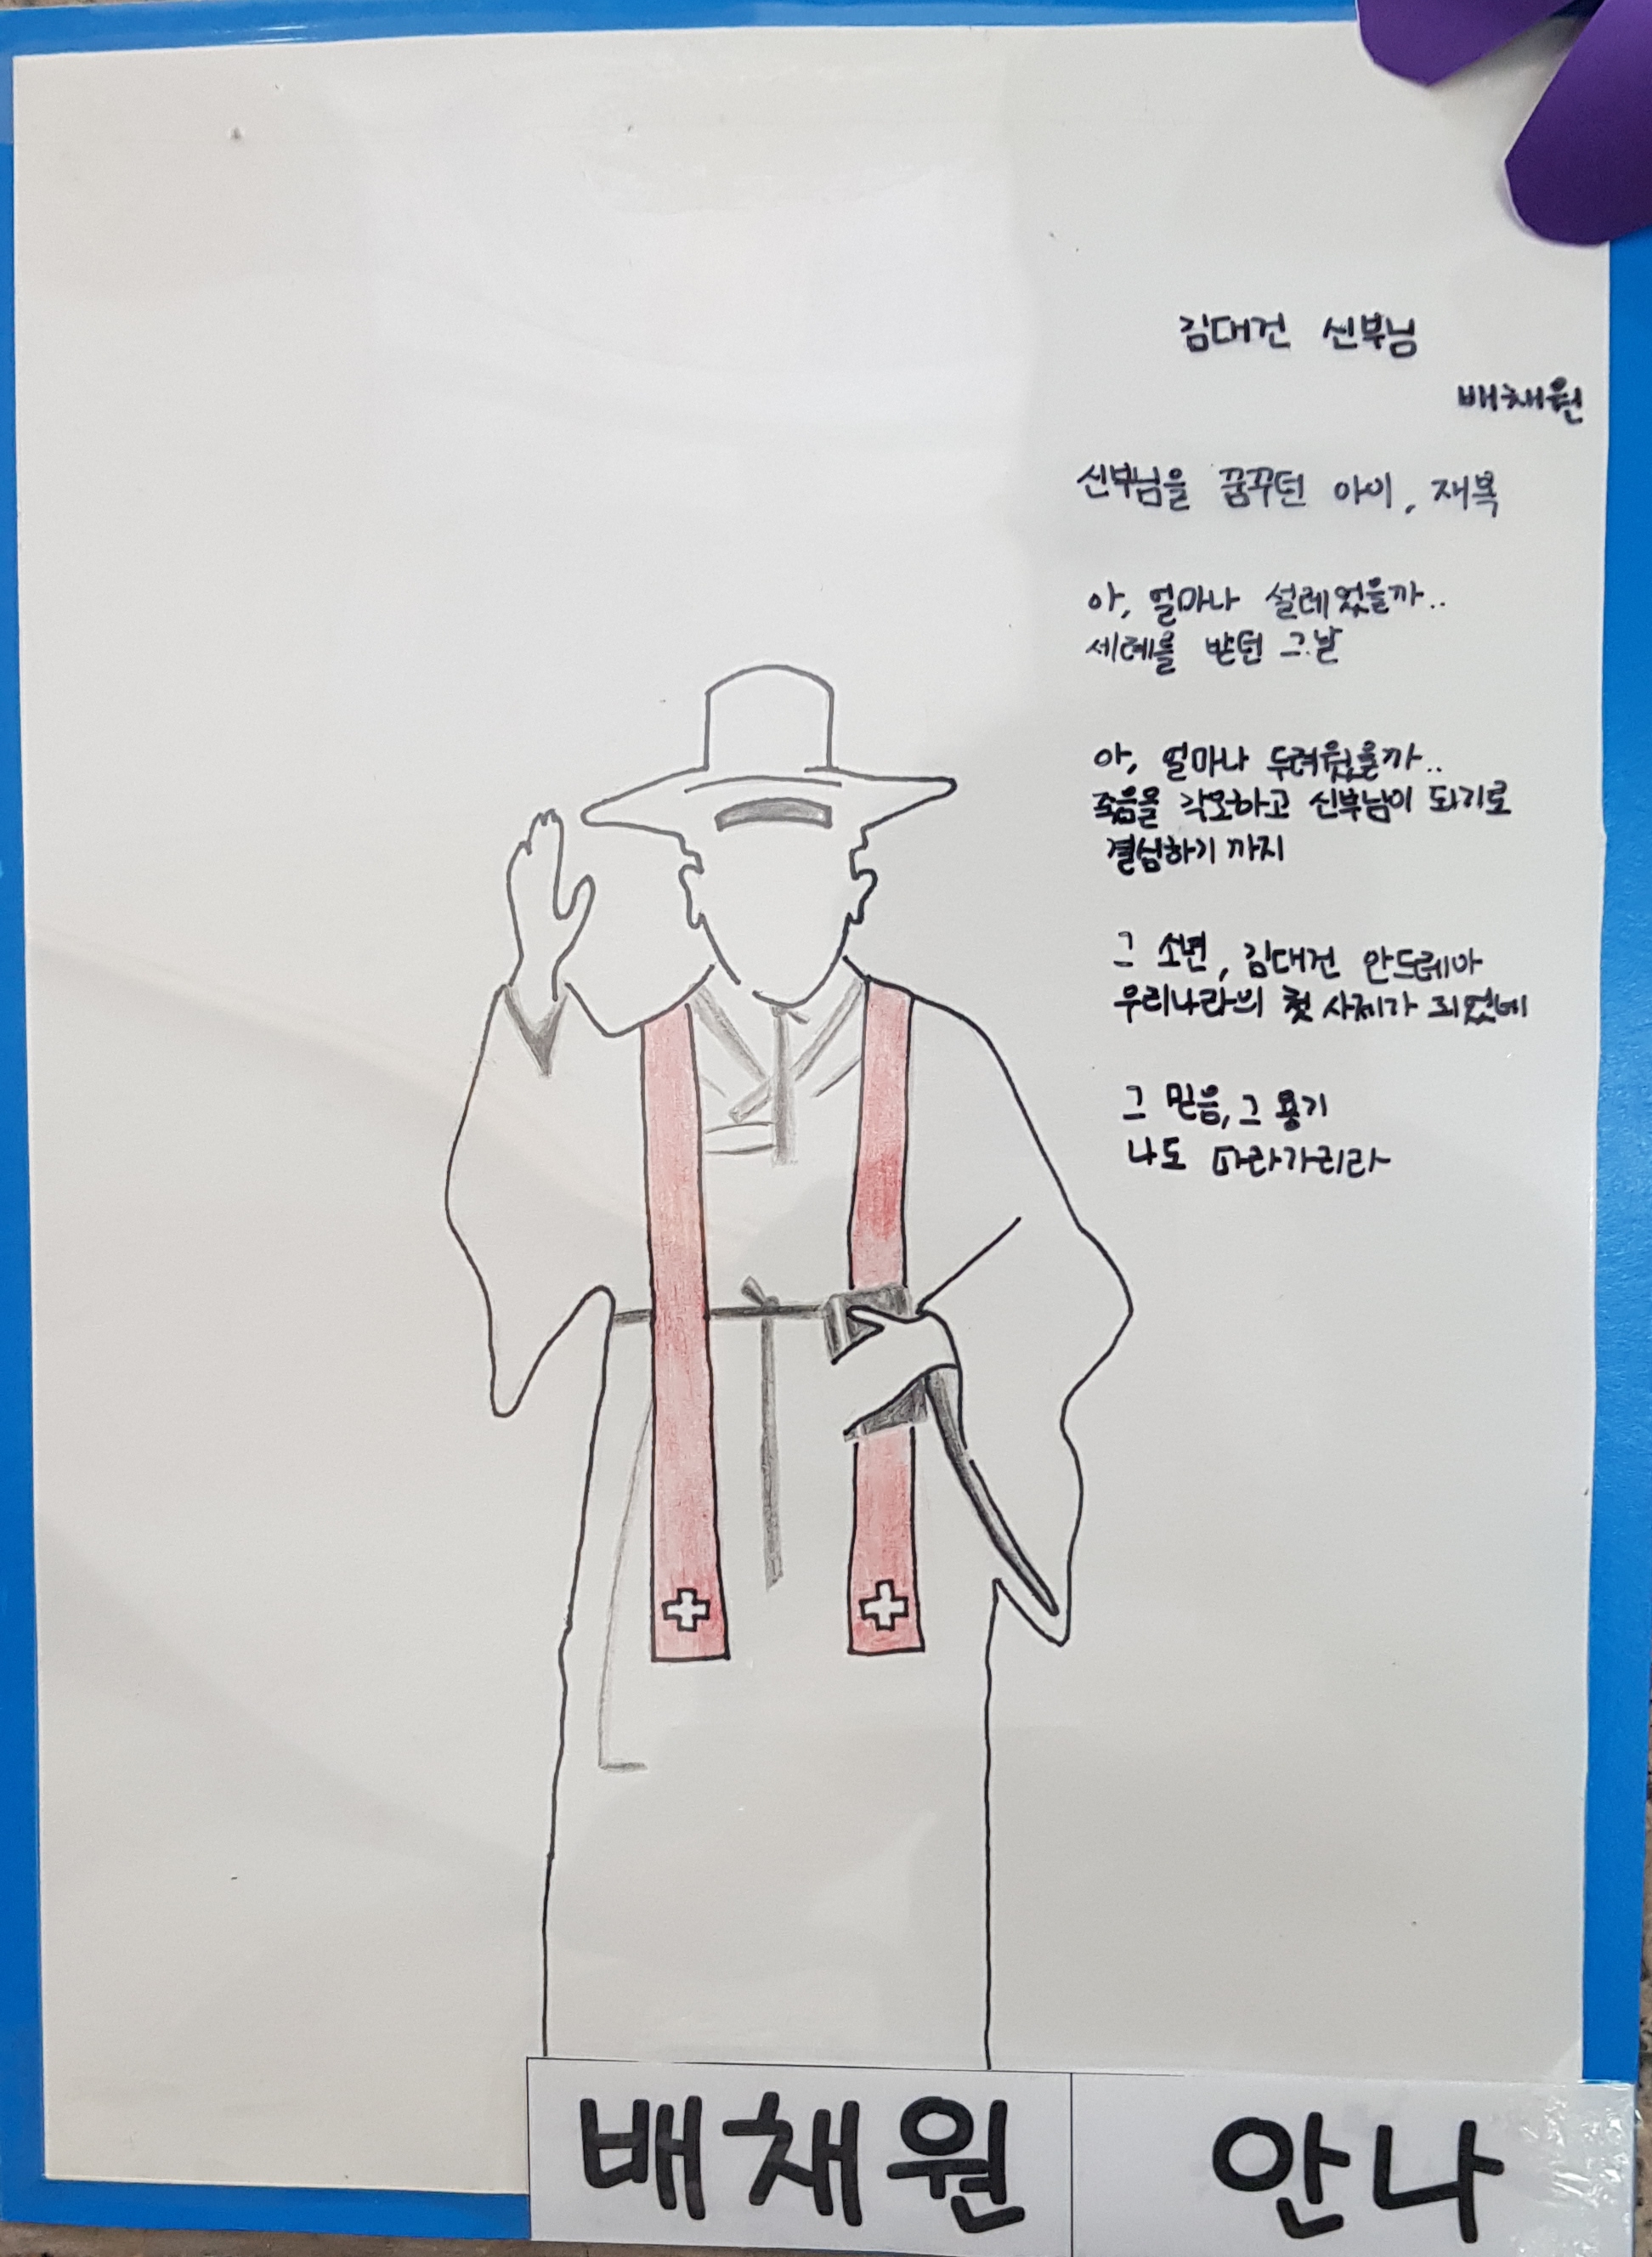 김대건 신부님
배채원
신부님을 꿈꾸던 아이, 재복
아, 얼마나 설레었을까..
세례를 받던 그날
아, 얼마나 두려웠을까..
죽음을 각오하고 신부님이 되기로
결심하기 까지
그 소년, 김대건 안드레아
우리나라의 첫 사제가 되었네
그 믿음, 그 용기
나도 따라가리라
배채원 안나